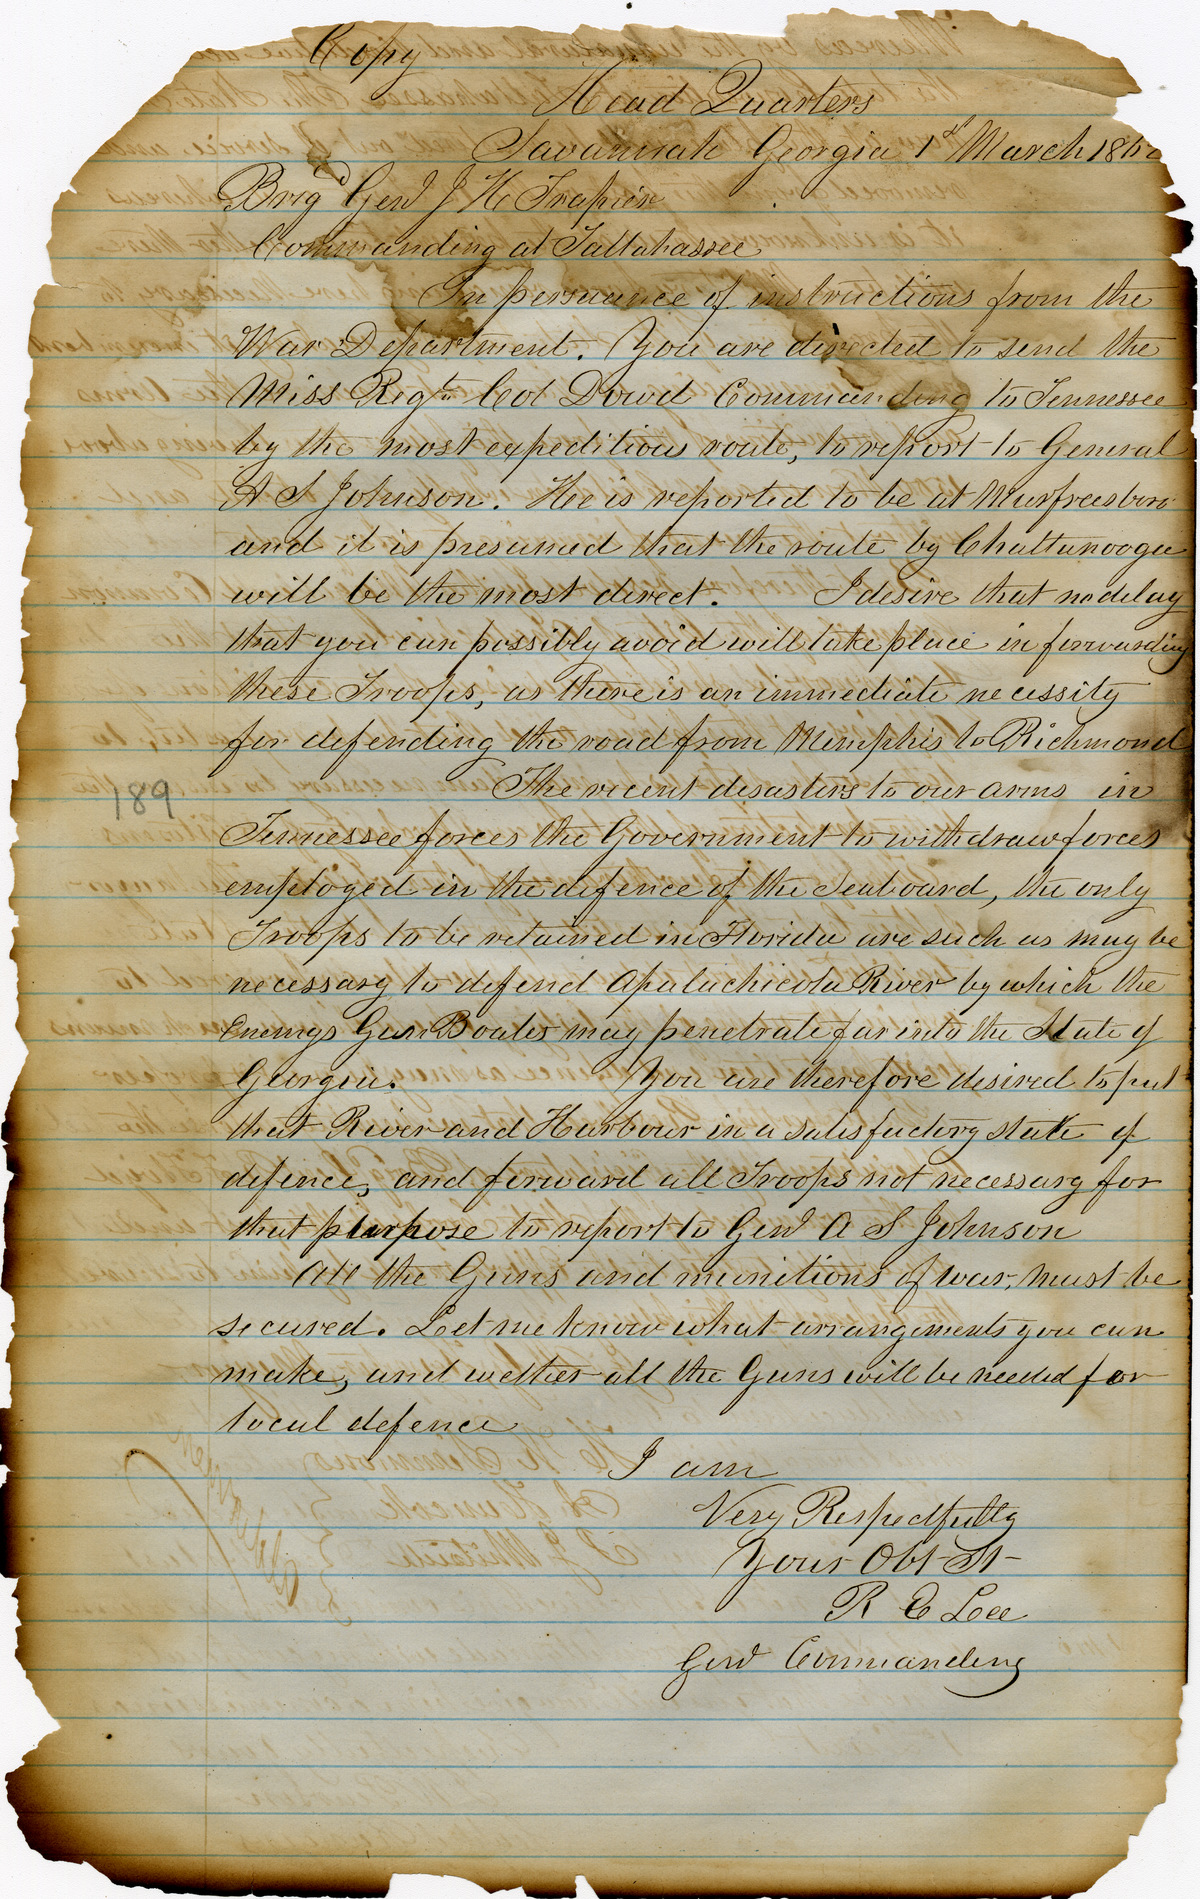 Copy
Head Quarters
Savannah Georgia 1st March 186
Brigd Genl J H Trapier
Commanding at Tallahassee
In persuance of instructions from the
War Department. You are directed to send the
Miss Regt Col Dowd Commanding to Tennessee
by the most expeditious route, to report to General
A S Johnson. He is reported to be at Murfreesboro
and it is presumed that the route by Chattanooga
will be the most direct. I desire that no delay
that you can possibly avoid will take place in forwarding
these Troops, as there is an immediate necessity
for defending the road from Memphis to Richmond
189
The recent disasters to our arms in
Tennessee forces the Government to withdraw forces
employed in the defence of the Seaboard, the only
Troops to be retained in Florida are such as may be
necessary to defend Apalachicola River by which the
Enemys Gun Boates may penetrate far into the State of
Georgia. You are therefore desired to put
that River and Harbour in a satisfactory state of
defence, and forward all Troops not necessary for
that purpose to report to Genl A S Johnson
All the Guns and munitions of war, must be
secured. Let me know what arrangements you can
make, and wether all the Guns will be needed for
local defence
I am
Very Respectfully
Your Obt St
R E Lee
Genl Commanding